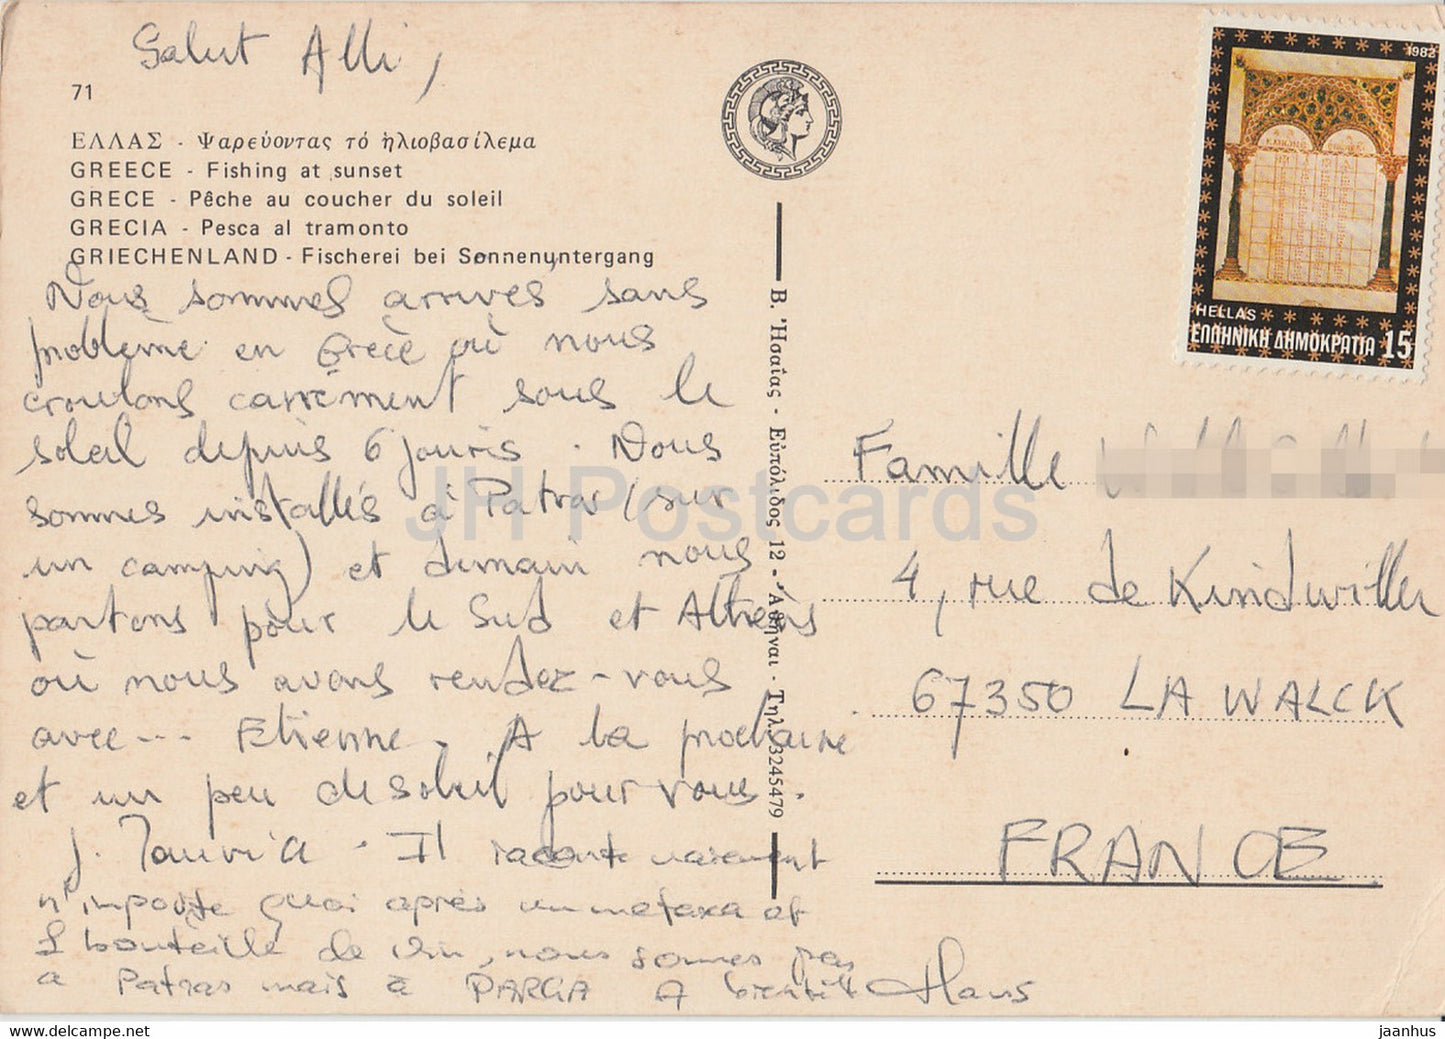 Salut Alli,
71
ΕΛΛΑΣ - Ψαρεύοντας τό ἡλιοβασίλεμα
GREECE - Fishing at sunset
GRECE - Pêche au coucher du soleil
GRECIA - Pesca al tramonto
GRIECHENLAND - Fischerei bei Sonnenuntergang
Nous sommes arrivés sans
problème en Grèce où nous
croulons carrément sous le
soleil depuis 6 jours. Nous
sommes installés à Patras (sur
un camping) et demain nous
partons pour le Sud et Athènes
où nous avons rendez-vous
avec --- Etienne. A la prochaine
et un peu de soleil pour vous.
J. - Il raconte vraiement
n'importe quoi après un metaxa et
bouteille de vin, nous sommes pas
a Patras mais à PARGA A bientôt Hans
Β. Ἠσαΐας - Εὐπόλιδος 12 - Ἀθῆναι - Τηλ. 3245479
1982
HELLAS
ΕΛΛΗΝΙΚΗ ΔΗΜΟΚΡΑΤΙΑ 15
Famille
4, rue de Kindwiller
67350 LA WALCK
FRANCE
JH Postcards
jaanhus